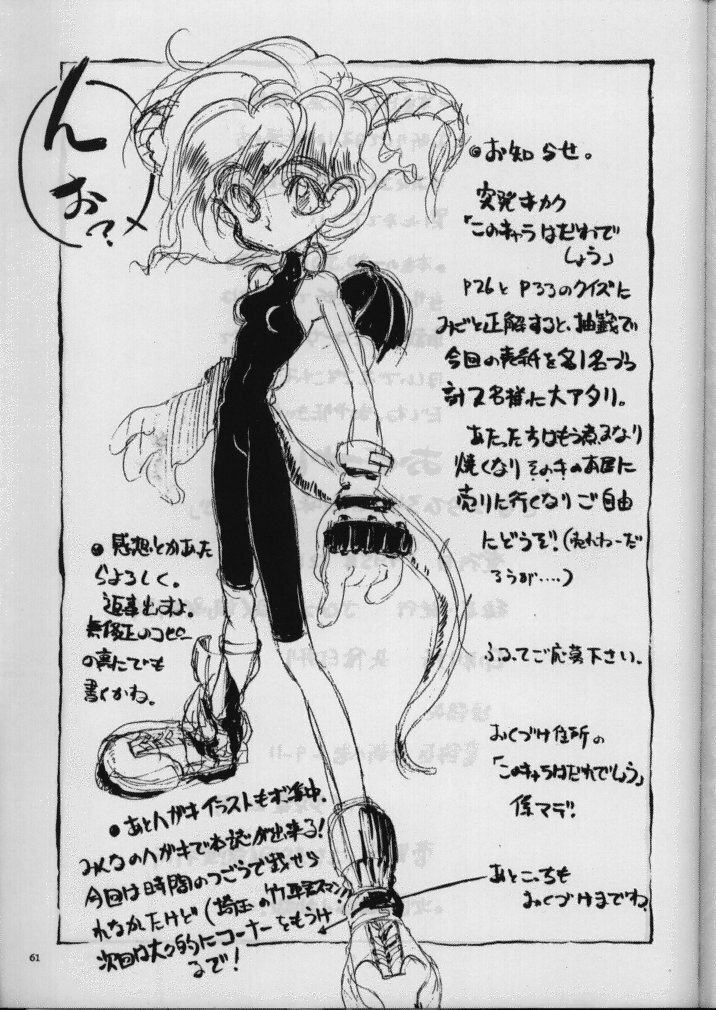 ん
お?
●お知らせ。
突発キカク
「このキャラはだれで
しょう」
P26と P33のクイズに
みごと正解すると、抽籤で
今回の表紙を各1名づつ
計2名様に大アタリ。
あたった方はもう煮るなり
焼くなりその手のお店に
売りに行くなりご自由
にどうぞ!(売れねーだ
ろうが....)
ふるってご応募下さい。
おくづけ住所の
「このキャラはだれでしょう」
係マデ!
あとこっちも
おくづけまでね。
●感想とかあた
らよろしく。
返事出すよ。
無修正のコピー
の裏にでも
書くかね。
●あとハガキイラストもボ集中。
みんなのハガキで本誌が出来る!
今回は時間のつごうで載せら
れなかたけど(埼玉の スマン!!)
次回は大々的にコーナーをもうけ
るで!
61